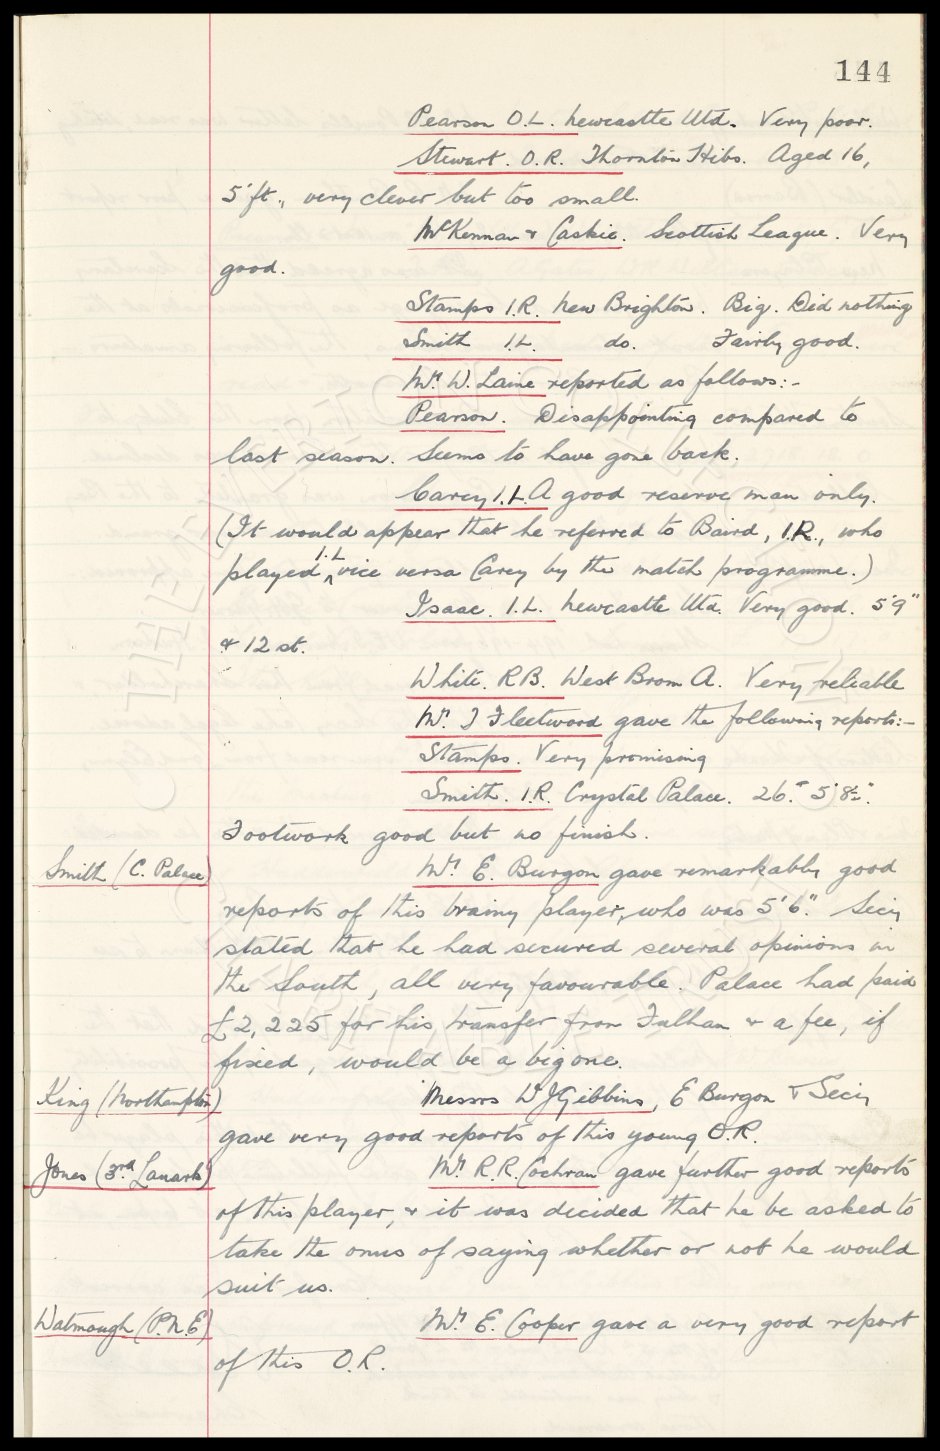 144
Pearson O.L. Newcastle Utd. Very poor.
Stewart. O.R. Thornton Hibs. Aged 16,
5'ft., very clever but too small.
McKennan & Caskie. Scottish League. Very
good.
Stamps I.R. New Brighton. Big. Did nothing
Smith I.L. do. Fairly good.
Mr. W. Laine reported as follows:-
Pearson. Disappointing compared to
last season. Seems to have gone back.
Carey I.L. A good reserve man only.
(It would appear that he referred to Baird, I.R., who
played I.L vice versa Carey by the match programme.)
Isaac. I.L. Newcastle Utd. Very good. 5'9"
& 12 st.
White. R.B. West Brom A. Very reliable
Mr. J Fleetwood gave the following reports:-
Stamps. Very promising
Smith. I.R. Crystal Palace. 26. 5'8½".
Footwork good but no finish.
Smith (C. Palace) Mr. E. Burgon gave remarkably good
reports of this brainy player, who was 5'6". Secy
stated that he had secured several opinions in
the South, all very favourable. Palace had paid
£2,225 for his transfer from Fulham & a fee, if
fixed, would be a big one.
King (Northampton) Messrs W J Gibbins, E Burgon & Secy
gave very good reports of this young O.R.
Jones (3rd. Lanark) Mr. R.R. Cochran gave further good reports
of this player, & it was decided that he be asked to
take the onus of saying whether or not he would
suit us.
Watmough (P.N.E) Mr. E. Cooper gave a very good report
of this O.R.